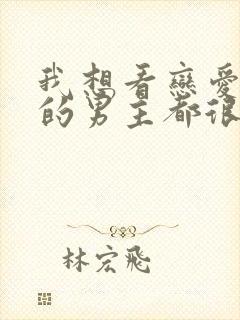 我想看戀愛
的男主都很
林宏飛